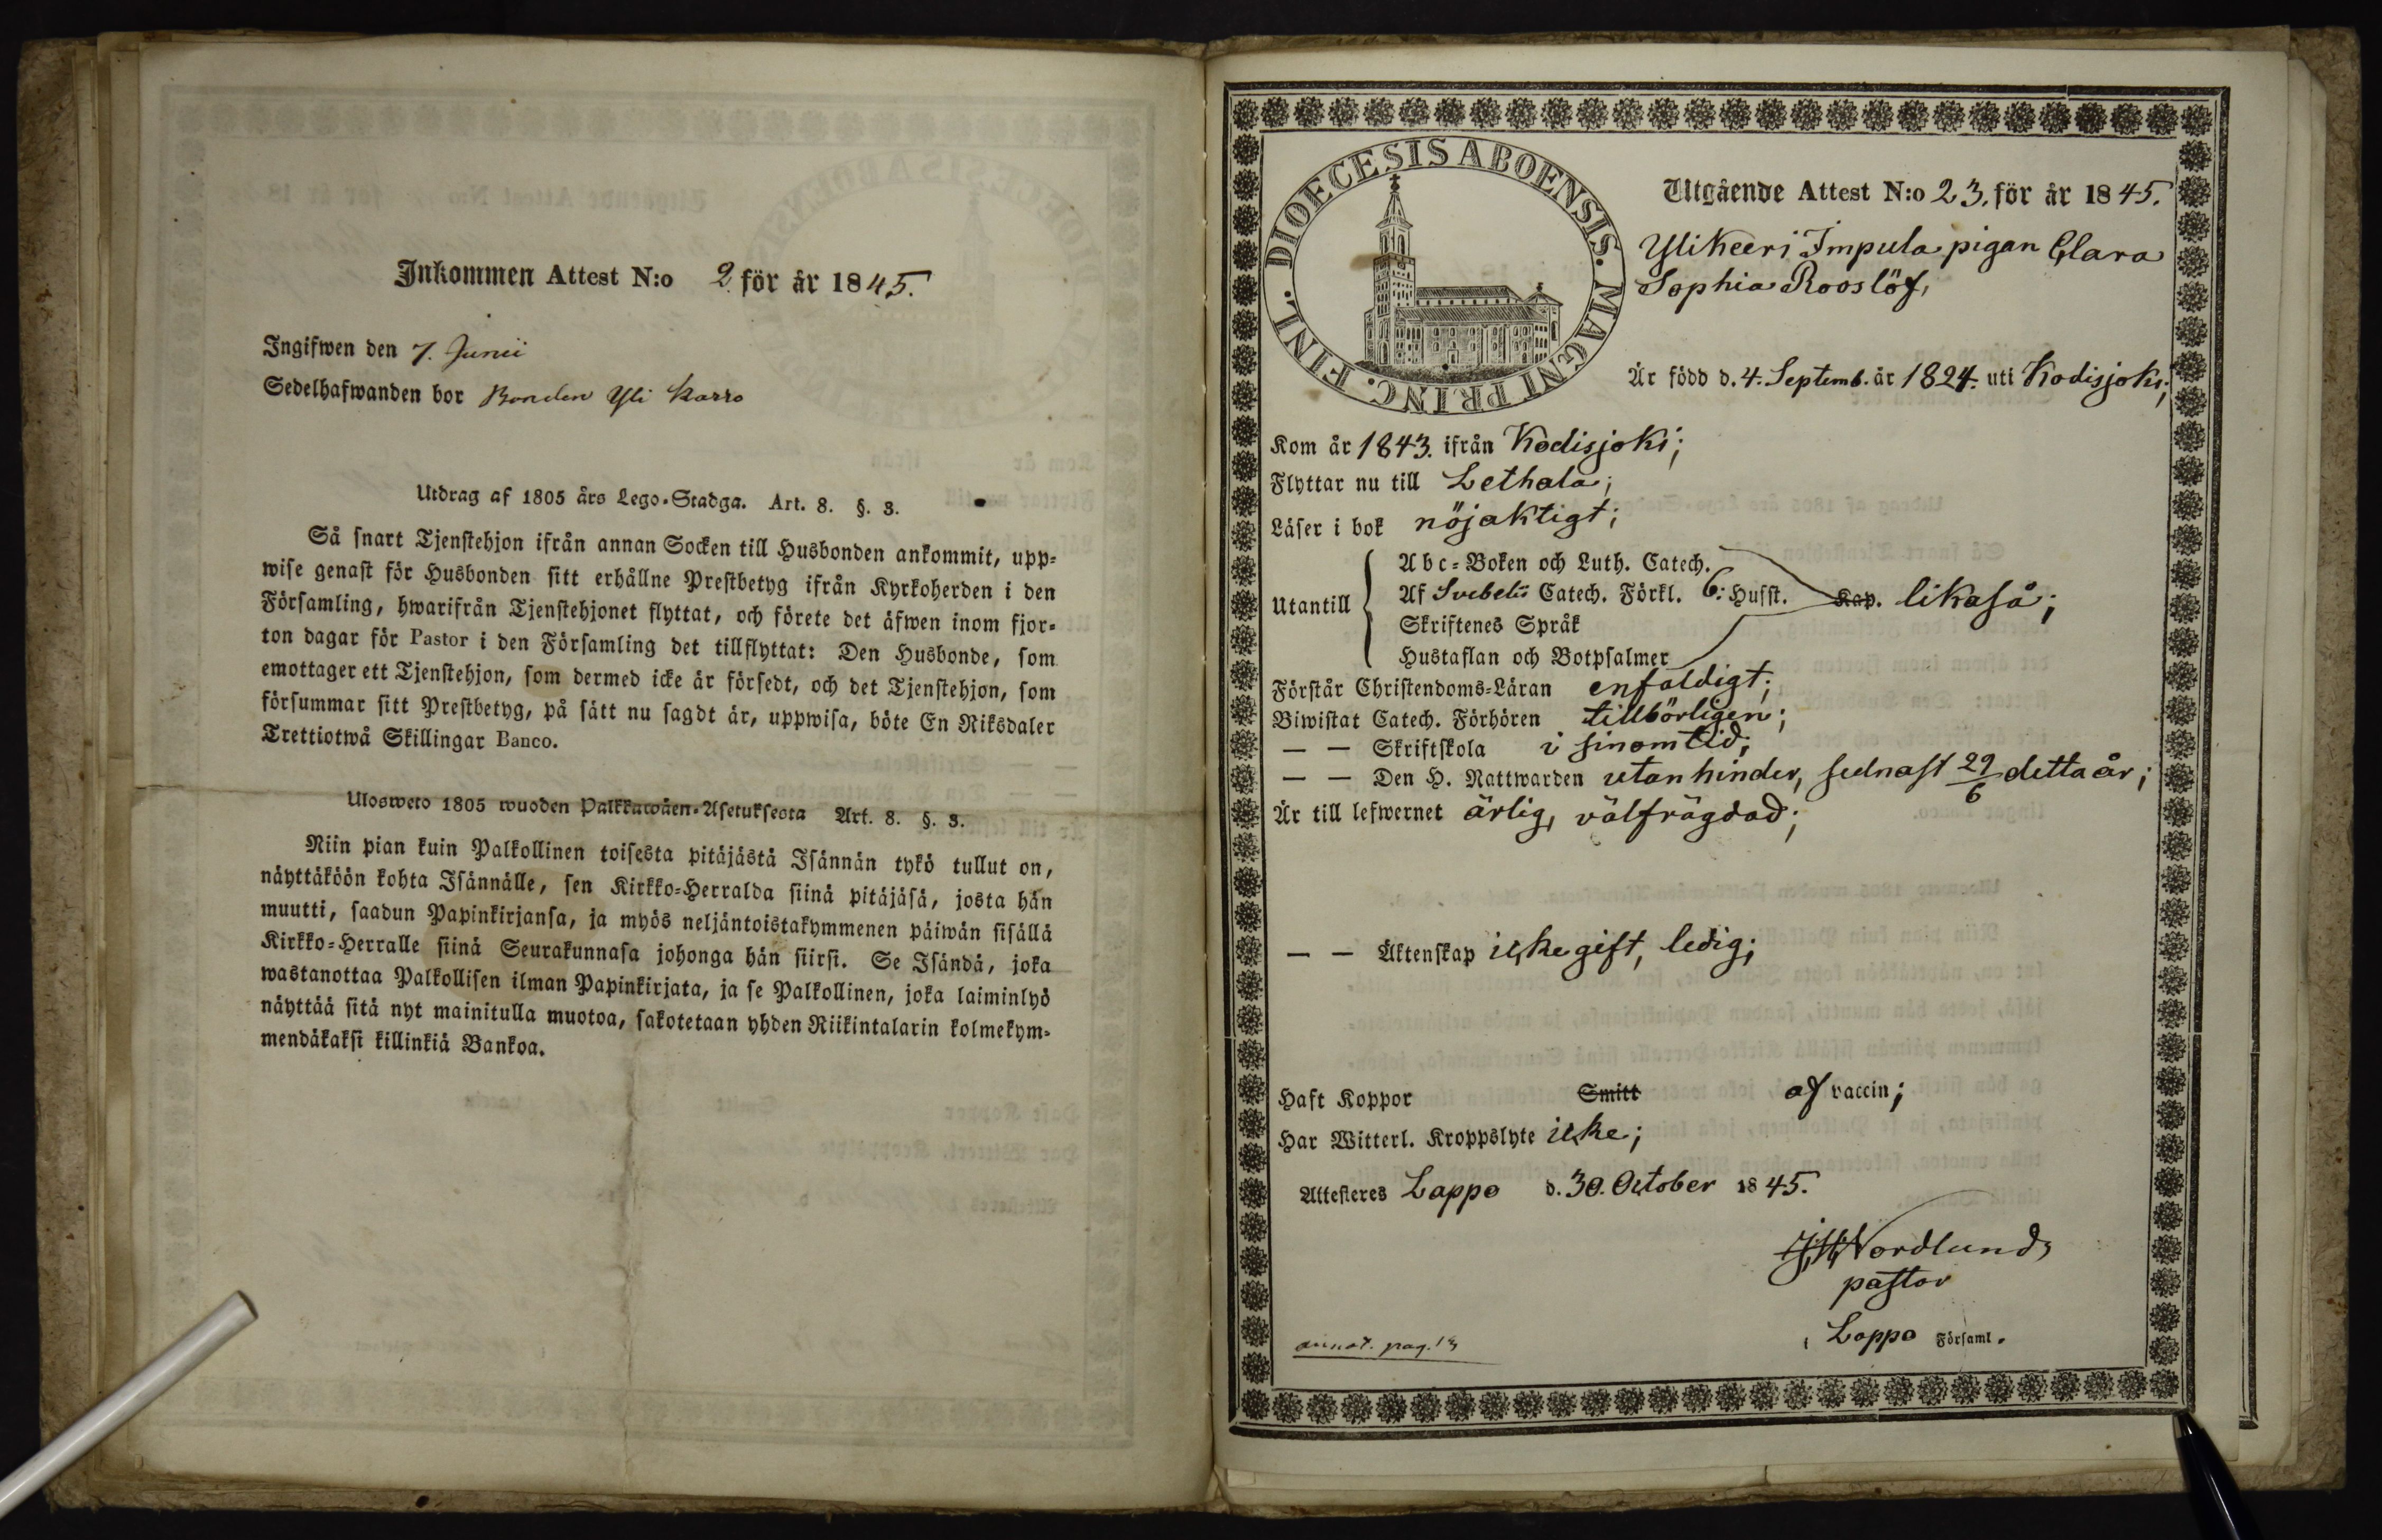 Inkommen Attest N:o 2. för år 1845.
Ingifwen den 7. Junii
Sedelhafwanden bor Bonden Yli Karro
Utdrag af 1805 års Lego-Stadga. Art. 8. §. 3.
Så snart Tjenstehjon ifrån annan Socken till Husbonden ankommit, upp-
wise genast för Husbonden sitt erhållne Prestbetyg ifrån Kyrkoherden i den
Församling, hwarifrån Tjenstehjonet flyttat, och förete det äfwen inom fjor-
ton dagar för Pastor i den Församling det tillflyttat: Den Husbonde, som
emottager ett Tjenstehjon, som dermed icke är försedt, och det Tjenstehjon, som
försummar sitt Prestbetyg, på sätt nu sagdt är, uppwisa, böte En Riksdaler
Trettiotwå Skillingar Banco.
Ulosweto 1805 wuoden Palkkawäen-Asetuksesta Art. 8. §. 3.
Niin pian kuin Palkollinen toisesta pitäjästä Isännän tykö tullut on,
näyttäköön kohta Isännälle, sen Kirkko-Herralda siinä pitäjäsä, josta hän
muutti, saadun Papinkirjansa, ja myös neljäntoistakymmenen päiwän sisällä
Kirkko-Herralle siinä Seurakunnasa johonga hän siirsi. Se Isändä, joka
wastanottaa Palkollisen ilman Papinkirjata, ja se Palkollinen, joka laiminlyö
näyttää sitä nyt mainitulla muotoa, sakotetaan yhden Riikintalarin kolmekym-
mendäkaksi killinkiä Bankoa.
DIOECESIS ABOENSIS. MAGNI PRINC. FINL.
Utgående Attest N:o 23. för år 1845.
Ylikeeri Impula pigan Clara
Sophia Rooslöf,
Är född d. 4. Septemb. år 1824. uti Kodisjoki;
Kom år 1843. ifrån Kodisjoki;
Flyttar nu till Lethala;
Läser i bok nöjaktigt;
Utantill
Abc-Boken och Luth. Catech.
Af Svebelii Catech. Förkl. 6: Hufst. Kap. likaså;
Skriftenes Språk
Hustaflan och Botpsalmer
Förstår Christendoms-Läran enfaldigt;
Biwistat Catech. Förhören tillbörligen;
— — Skriftskola i sinom tid;
— — Den H. Nattwarden utan hinder, sednast 29/6 detta år;
Är till lefwernet ärlig, välfrägdad;
— — Äktenskap icke gift, ledig;
Haft Koppor Smitt af vaccin;
Har Witterl. Kroppslyte icke;
Attesteres Lappo d. 30. October 1845.
Nordlund,
pastor
i Lappo Församl.
annot. pag. 13